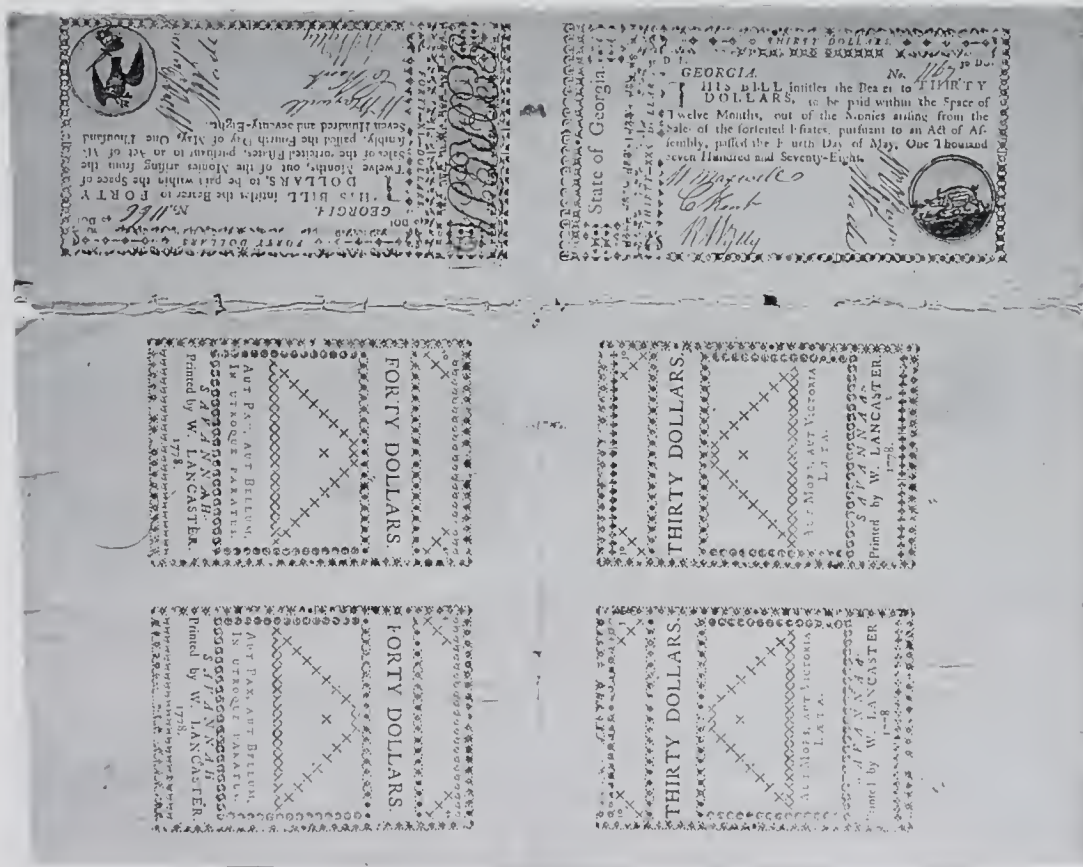 FORTY DOLLARS
GEORGIA. No. 1166 40 Dol
THIS BILL intitles the Bearer to FORTY
DOLLARS, to be paid within the Space of
Twelve Months, out of the Monies arising from the
Sale of the forfeited Estates, pursuant to an Act of As-
sembly, passed the Fourth Day of May, One Thousand
Seven Hundred and seventy-Eight.
W Maxwell
C Kent
R Wylly
GEORGIA
THIRTY DOLLARS
State of Georgia.
GEORGIA. No. 1167 30 Dol
THIS BILL intitles the Bearer to THIRTY
DOLLARS, to be paid within the Space of
Twelve Months, out of the Monies arising from the
Sale of the forfeited Estates, pursuant to an Act of As-
sembly, passed the Fourth Day of May, One Thousand
Seven Hundred and Seventy-Eight.
W Maxwell
C Kent
R Wylly
FORTY DOLLARS.
AUT PAX, AUT BELLUM,
IN UTROQUE PARATUS.
SAVANNAH
Printed by W. LANCASTER.
1778.
THIRTY DOLLARS.
AUT MORS, AUT VICTORIA
LÆTA.
SAVANNAH
Printed by W. LANCASTER.
1778.
FORTY DOLLARS.
AUT PAX, AUT BELLUM,
IN UTROQUE PARATUS.
SAVANNAH
Printed by W. LANCASTER.
1778.
THIRTY DOLLARS.
AUT MORS, AUT VICTORIA
LÆTA.
SAVANNAH
Printed by W. LANCASTER
1778